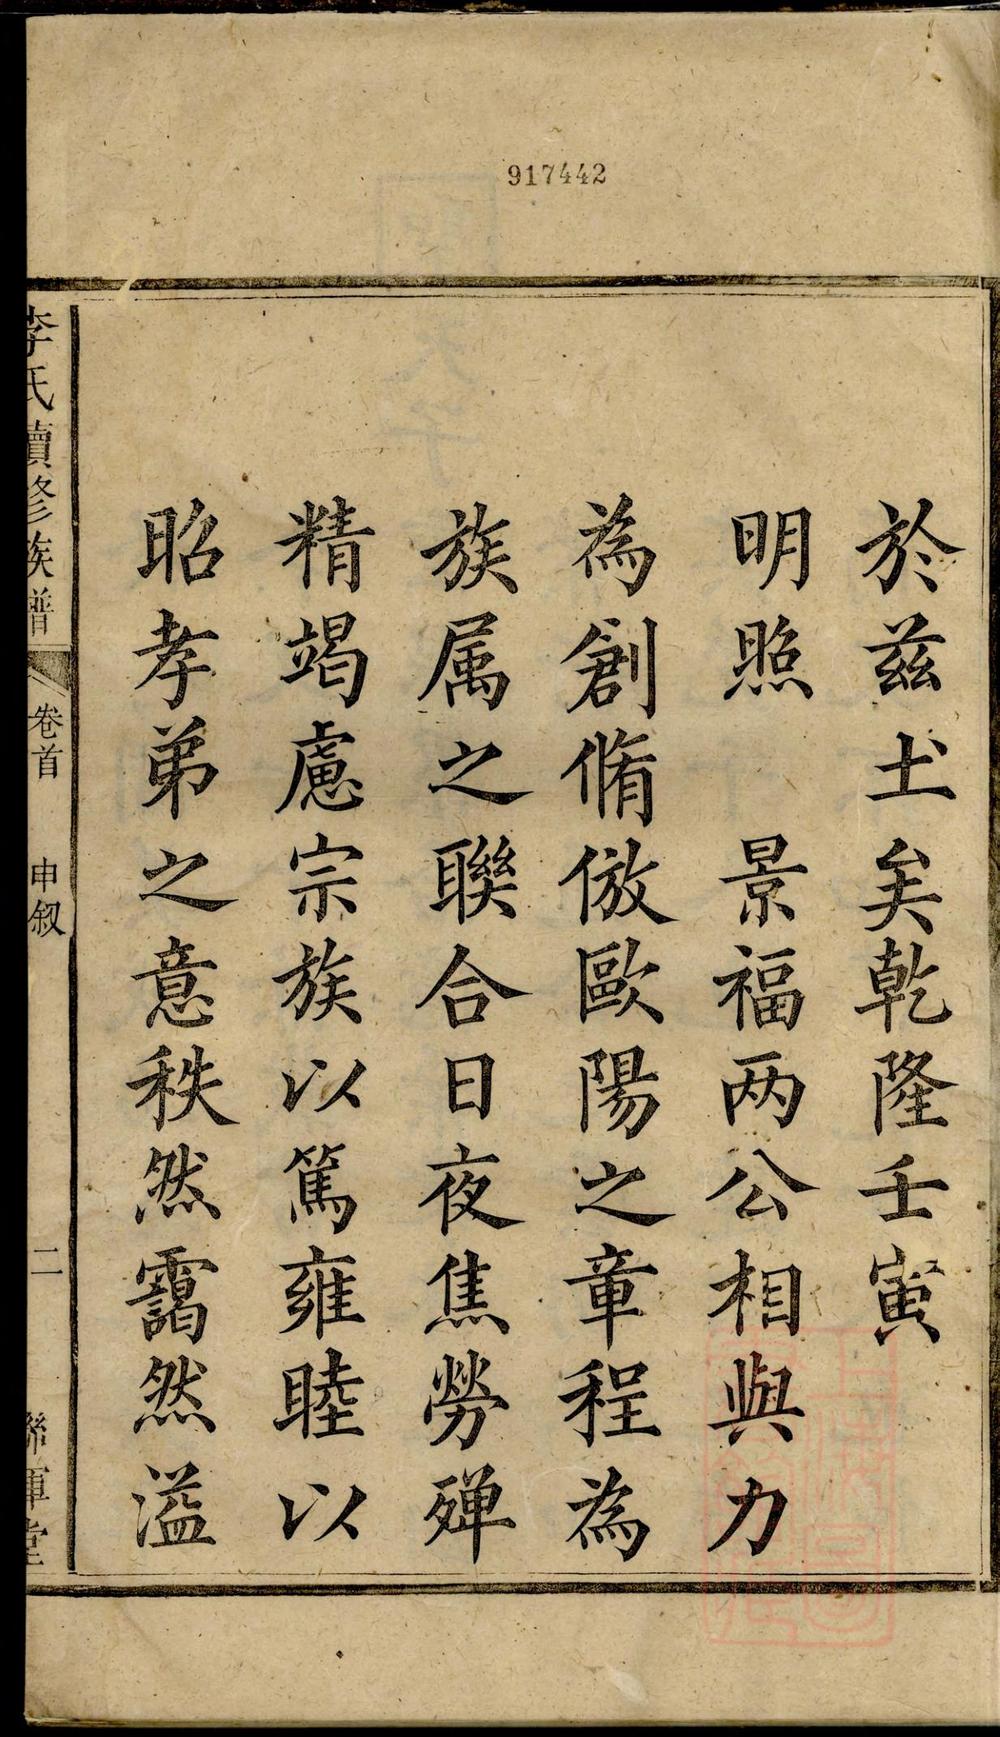 917442
於兹土矣乾隆壬寅
明照 景福两公相與力
為創脩倣歐陽之章程為
族属之聯合日夜焦勞殫
精竭慮宗族以篤雍睦以
昭孝弟之意秩然靄然溢
李氏續修族譜
卷首 申叙
二
聯輝堂